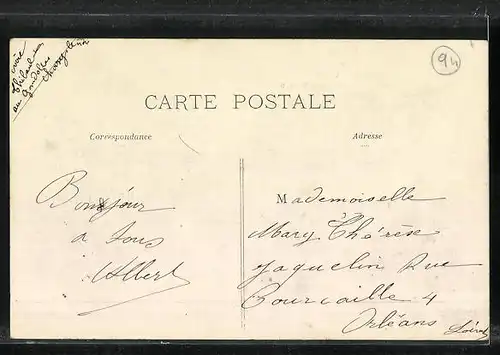 94
CARTE POSTALE
Correspondance
Adresse
Bonjour
à tous
Albert
Mademoiselle
Mary Thérèse
Jaquelin Rue
Courcaille 4
Orléans Loiret